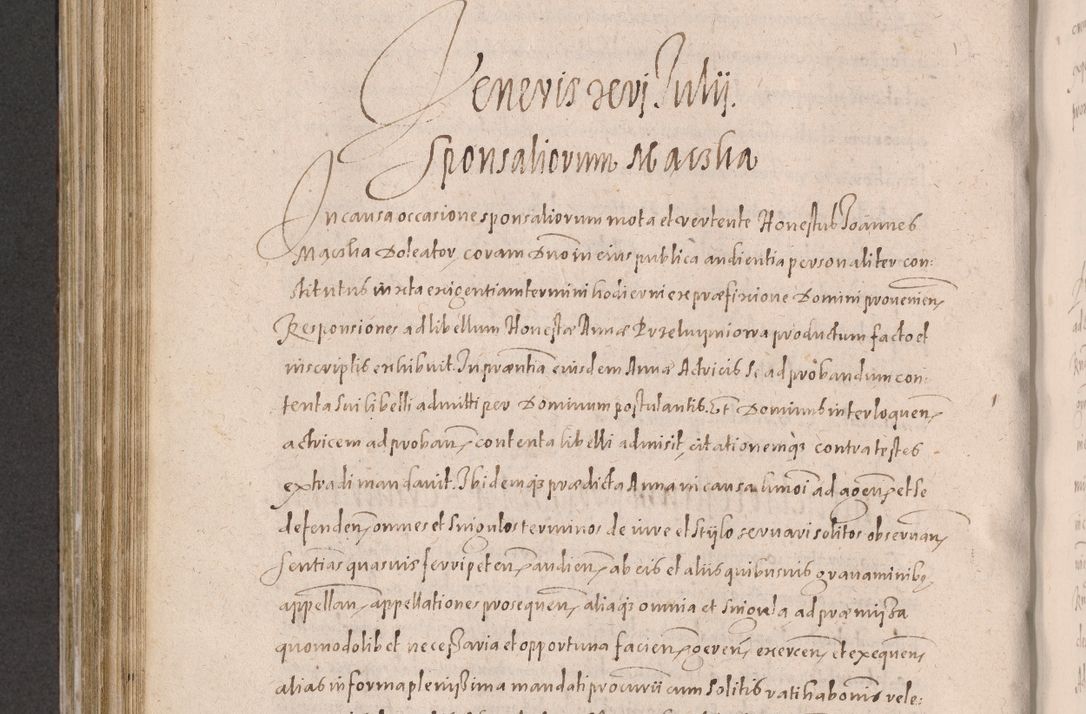 Veneris xxvj Julij.
Sponsaliorum Maczka
In causa occasione sponsaliorum mota et vertente Honestus Joannes
Maczka Doleator, coram Dno in eius publica audientia personaliter con:
stitutus iuxta exigentiam termini hodierni ex præfixione Domini provenien,
Responsiones ad libellum Honestæ Annæ productum facto et
in scriptis exhibuit. In præsentia eiusdem Annæ Actricis se ad probandum con:
tenta sui libelli admitti per Dominum postulantis. Et Dominus interloquen,
actricem ad proban, contenta libelli admisit, citationemq3 contra testes
extradi mandavit. Ibidemq3 prædicta Anna in causa hmoi ad agen, et se
defenden, omnes et singulos terminos de iure et stylo servari solitos observan,
sentias quasvis ferri peten, audien, ab eis et aliis quibusvis gravaminibus,
appellan, appellationes prosequen, aliaq3 omnia et singula ad præmissa
quomodolibet necessaria et opportuna facien, geren, exercen, et exequen,
alias in forma plenissima mandati procurii cum solitis ratihabonis rele: